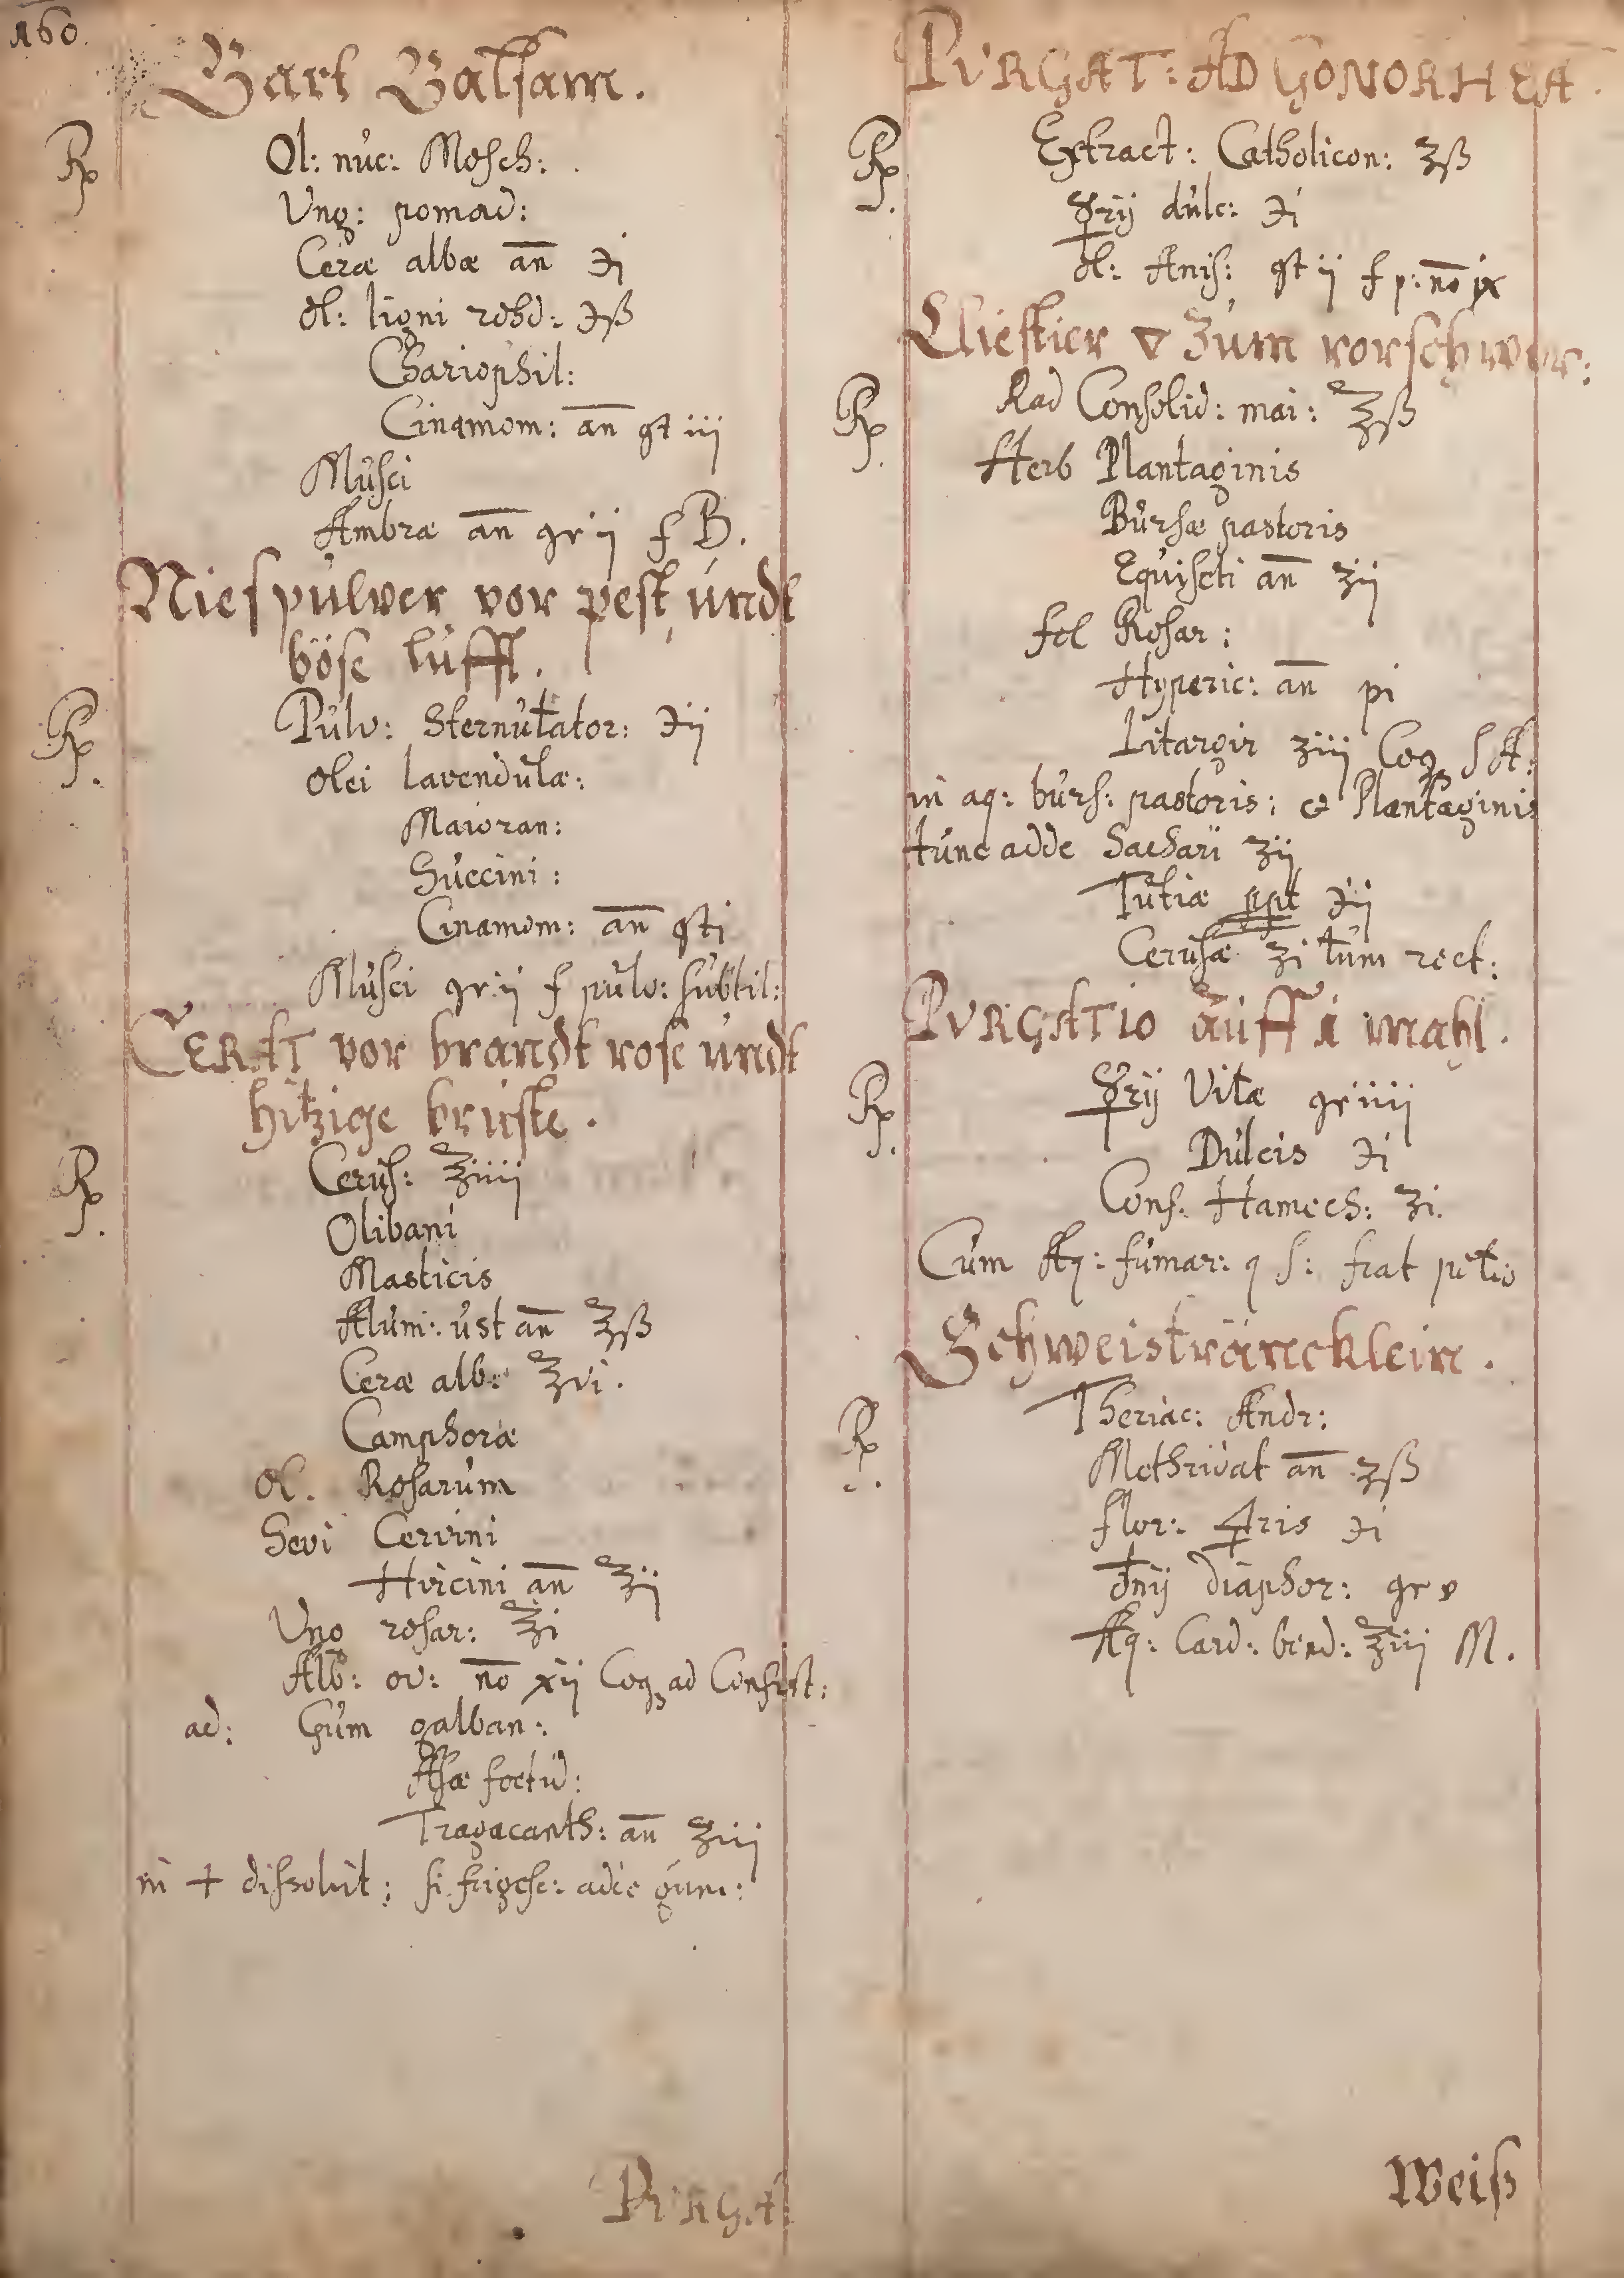 160.
Bart Balsam.
Rp Ol: nuc: Mosch:
Ung: pomad:
Ceræ albæ an ℈j
Ol: ligni rohd: ℈ß
Chariophil:
Cinamom: an gt iij
Musci
Ambræ an gr ij f B.
Niespulver vor pest, undt
böse lufft.
Rp. Pulv: Sternutator: ℈ij
Olei lavendulæ:
Maioran:
Succini:
Cinamom: an gt j
Musci gr: ij f pulv: subtil:
CERAT vor brandt rose undt
hitzige brüste.
Rp. Cerus: ℥iiij
Olibani
Masticis
Alum: ust an ℥ß
Ceræ alb: ℥vi.
Camphoræ
Ol. Rosarum
Sevi Cervini
Hircini an ℥ij
Ung rosar: ℥i
Alb: ov: no xij Coq ad Consist:
ad: Gum galban:
Asæ foetid:
Tragacanth: an ʒiij
in + dissolut: si frigesc: adde gum:
PURGAT
PURGAT: AD GONORHEA.
Rp. Extract: Catholicon: ʒß
☿rij dulc: ℈i
Ol: Anis: gt ij f p: no ix
Cliestier ▽ zum vorschwer:
Rp. Rad Consolid: mai: ℥ß
Herb Plantaginis
Bursæ pastoris
Equiseti an ʒij
fol Rosar:
Hyperic: an pi
Litargir ʒiij Coq S A:
in aq: burs: pastoris: et Plantaginis
tunc adde Sachari ʒij
Tutiæ ppt ℈ij
Cerusæ ʒi tum rect:
PURGATIO auff 1 mahl.
Rp. ☿rij Vitæ gr iiij
Dulcis ℈i
Conf. Hamech: ʒi.
Cum Aq: fumar: q s: fiat potio
Schweistráncklein.
Rp. Theriac: Andr:
Methridat an ʒß
flor: 🜍ris ℈i
♁nij diaphor: gr v
Aq: Card: bened: ℥iij M.
Weiß